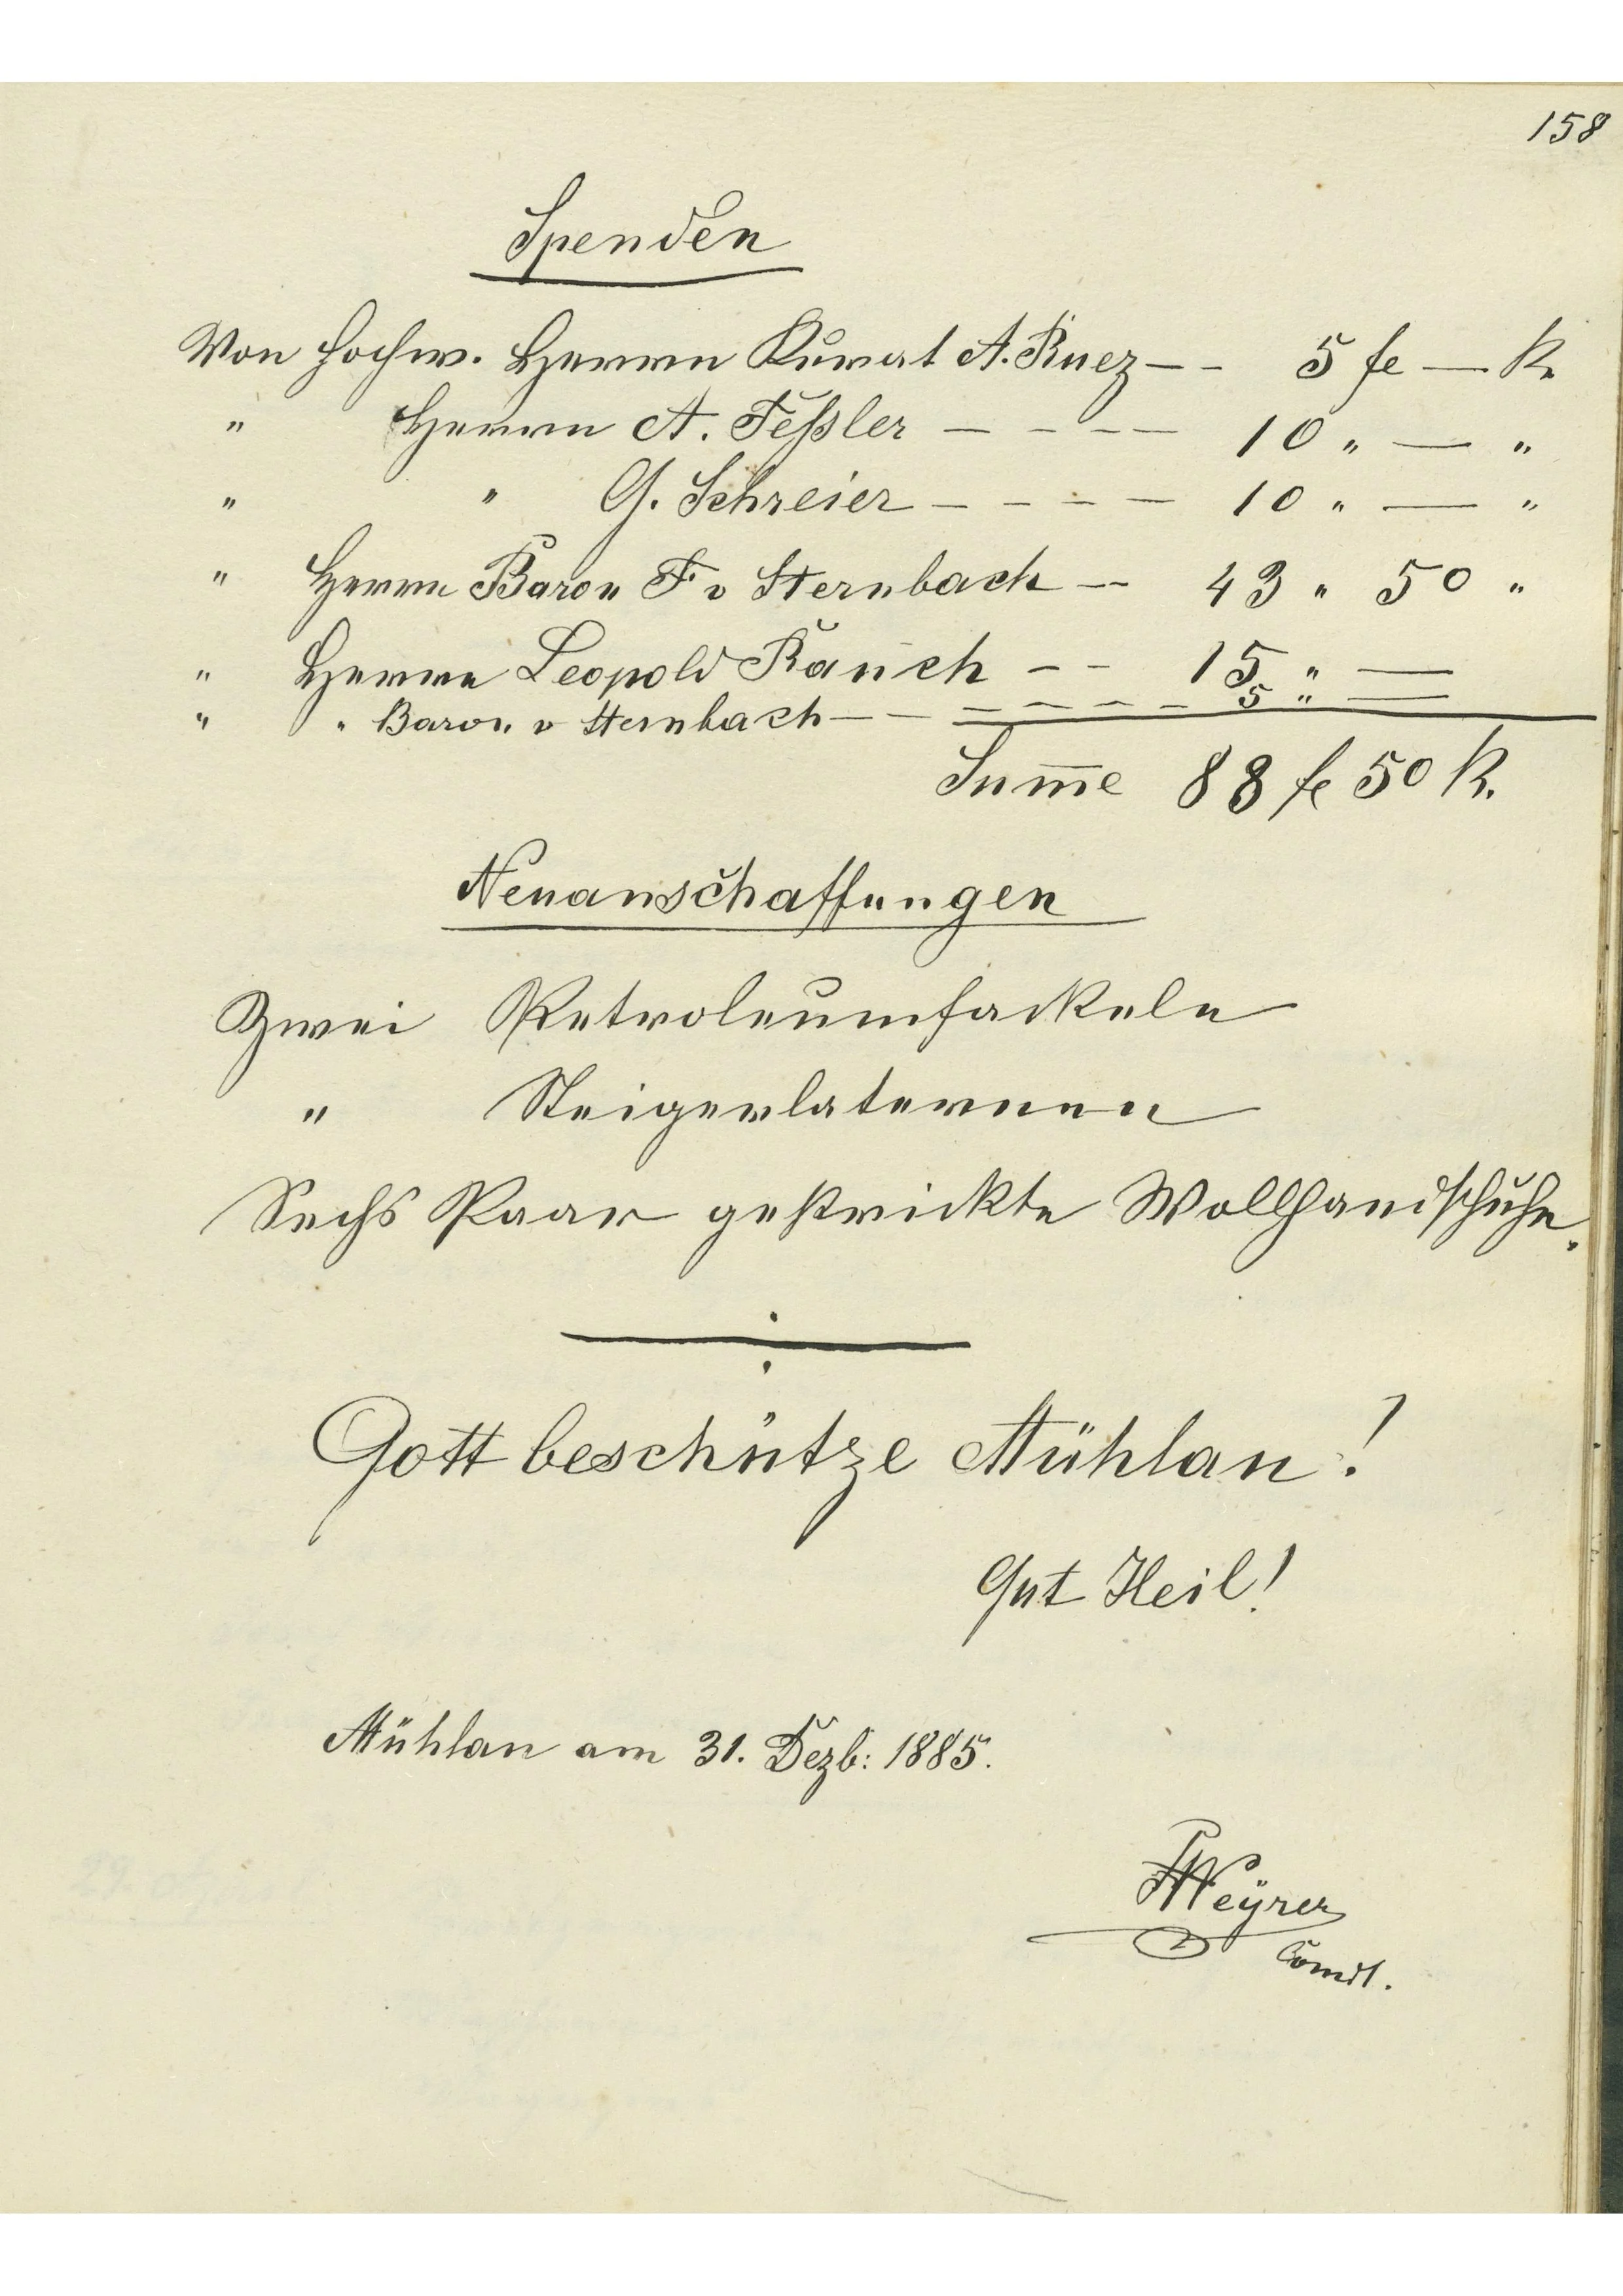 158
Spenden
Von Hochw. Herrn Kurat A. Ruez — - 5 fl — k.
" Herrn A. Feßler — - - — 10 " — "
" " G. Schreier — - - - — 10 " — "
" Herrn Baron F v Sternbach — - 43 " 50 "
" Herrn Leopold Rauch - - 15 " —
" " Baron v Sternbach — — - - - - 5 " —
Sum̅e 88 fl 50 k.
Neuanschaffungen
Zwei Petroleumfackeln
" Steigerlaternen
Sechs Paar gestrickte Wollhandschuhe.
Gott beschütze Mühlau!
Gut Heil!
Mühlau am 31. Dezb: 1885.
Weyrer
Com̅dt.